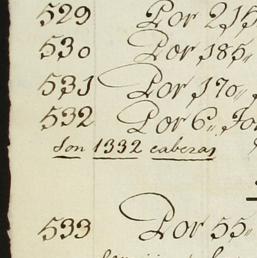 529 Por 215
530 Por 185,,
531 Por 170,,
532 Por 6,,
Son 1332 cabezas
533 Por 55,,